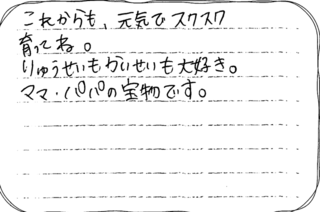 これからも、元気でスクスク
育ってね。
りゅうせいもかいせいも大好き。
ママ・パパの宝物です。